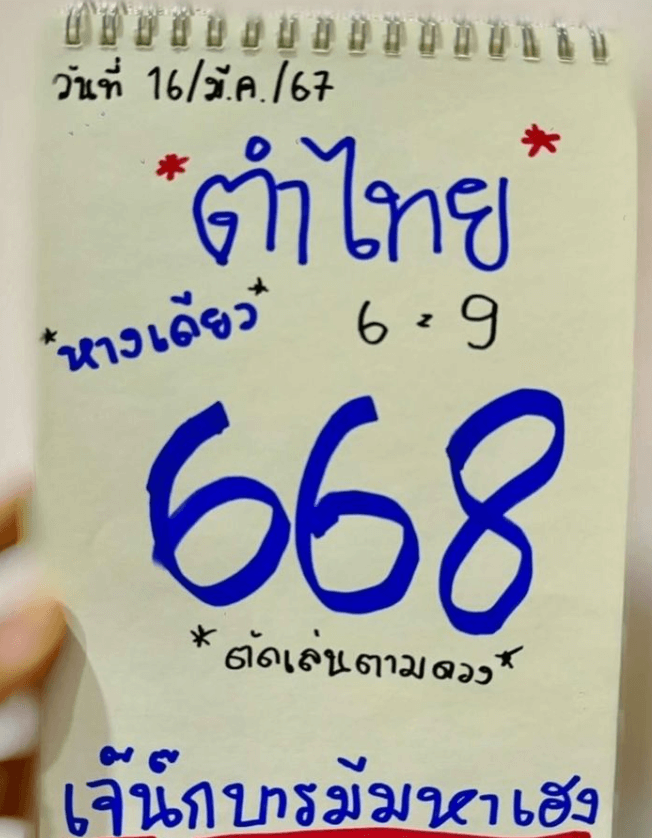 วันที่ 16/มี.ค./67
*ตำไทย*
*หางเดียว* 6 = 9
668
*ตัดเล่นตามดวง*
เจ๊นุ๊กบารมีมหาเฮง